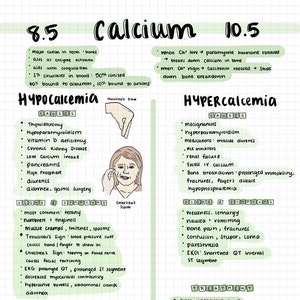 8.5 Calcium 10.5
major cation in bone + bone
acts as enzyme activator
aids with coagulation
1% circulates in blood - 50% ionized
40% bound to albumin, 10% bound to anions
when Ca+ low → parathyroid hormone released
→ draws calcium in bone
when Ca+ high → calcitonin released → slows
down bone breakdown
HYPOCALCEMIA
CAUSES
Thyroidectomy
Hypoparathyroidism
Vitamin D deficiency
Chronic Kidney Disease
Low calcium intake
Pancreatitis
High Phosphate
diuretics
diarrhea, gastric surgery
Trousseau's Sign
Chvostek's
Sign
SIGNS & SYMPTOMS
most common: tetany
numbness + tingling
muscle cramps, twitches, spasms
Trousseau's Sign - blood pressure cuff
causes hand/finger to draw in
Chvostek's Sign: tapping on facial nerve
causes facial twitching
EKG: prolonged QT, prolonged ST segment
decreased myocardial contractility
hyperactive bowels, abdominal cramps
diarrhea
HYPERCALCEMIA
CAUSES
malignancies
hyperparathyroidism
medications:
renal failure
excess IV calcium
Bone breakdown: prolonged immobility,
fractures, Pagets disease
hypophosphatemia
SIGNS & SYMPTOMS
weakness, lethargy
nausea + vomiting
bone pain, fractures
confusion, stupor, coma
paresthesia
EKG: shortened QT interval
ST segment
TREATMENT